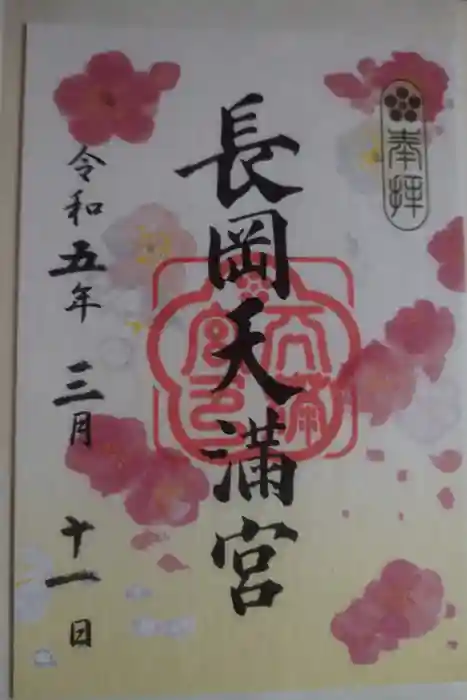 奉拝
長岡天満宮
天満宮印
令和五年 三月 十一日